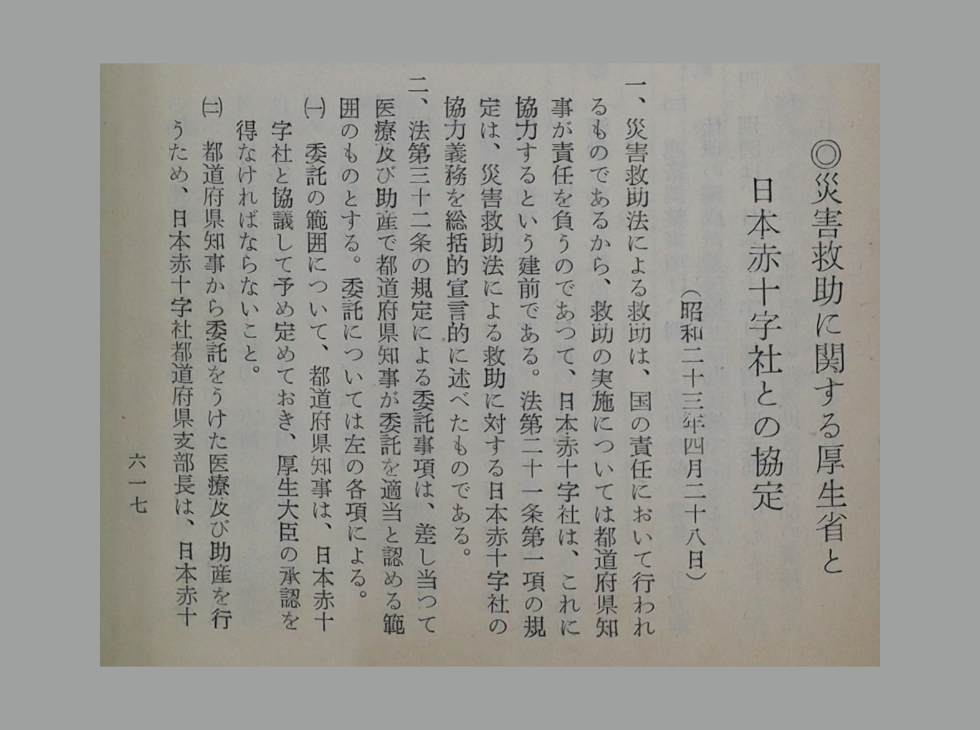 ◎災害救助に関する厚生省と
日本赤十字社との協定
（昭和二十三年四月二十八日）
一、災害救助法による救助は、国の責任において行われ
るものであるから、救助の実施については都道府県知
事が責任を負うのであつて、日本赤十字社は、これに
協力するという建前である。法第二十一条第一項の規
定は、災害救助法による救助に対する日本赤十字社の
協力義務を総括的宣言的に述べたものである。
二、法第三十二条の規定による委託事項は、差し当つて
医療及び助産で都道府県知事が委託を適当と認める範
囲のものとする。委託については左の各項による。
㈠　委託の範囲について、都道府県知事は、日本赤十
字社と協議して予め定めておき、厚生大臣の承認を
得なければならないこと。
㈡　都道府県知事から委託をうけた医療及び助産を行
うため、日本赤十字社都道府県支部長は、日本赤十
六一七